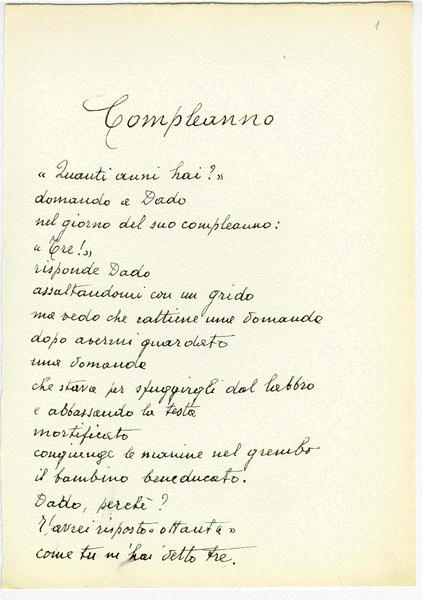 1
Compleanno
« Quanti anni hai?»
domando a Dado
nel giorno del suo compleanno:
« Tre!»
risponde Dado
assaltandomi con un grido
ma vedo che rattiene una domanda
dopo avermi guardato
una domanda
che stava per sfuggirgli dal labbro
e abbassando la testa
mortificato
congiunge le manine nel grembo
il bambino beneducato.
Dado, perchè?
T'avrei risposto « ottanta »
come tu m'hai detto tre.